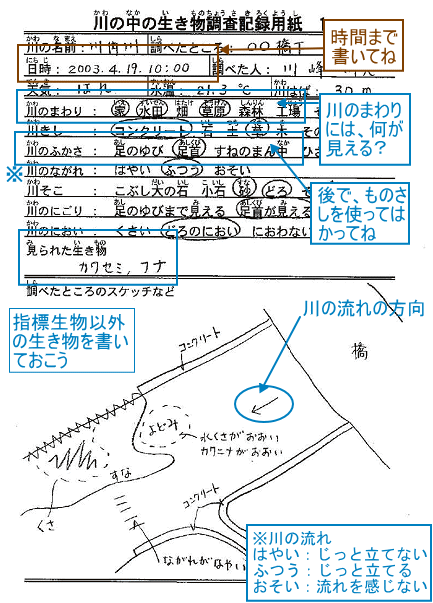 川の中の生き物調査記録用紙
川の名前：
調べたところ ○○橋下
時間まで
書いてね
日時：2003.4.19.10:00
調べた人：川 峰
天気：はれ
水温：21.3℃
川はば：30m
川のまわり： 家 水田 畑 草原 森林 工場
川のまわり
には、何が
見える？
川きし： コンクリート 石 土 草 木
川のふかさ： 足のゆび 足首 すねのまん中 ひざ
川のながれ： はやい ふつう おそい
※
川そこ： こぶし大の石 小石 砂 どろ
後で、ものさ
しを使っては
かってね
川のにごり： 足のゆびまで見える 足首が見える
川のにおい： くさい どろのにおい におわない
見られた生き物
カワセミ，フナ
調べたところのスケッチなど
指標生物以外
の生き物を書い
ておこう
川の流れの方向
コンクリート
橋
よどみ
水くさがおおい
カワニナがおおい
すな
くさ
コンクリート
ながれがはやい
※川の流れ
はやい：じっと立てない
ふつう：じっと立てる
おそい：流れを感じない